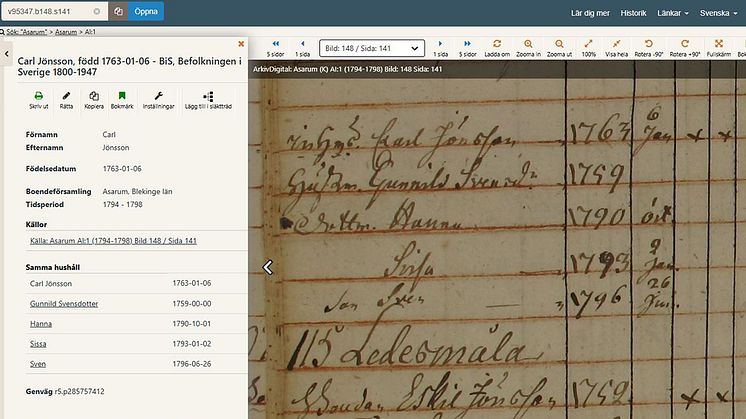 v95347.b148.s141 Öppna Lär dig mer Historik Länkar Svenska
Sök: "Asarum" > Asarum > AI:1
Carl Jönsson, född 1763-01-06 - BiS, Befolkningen i
Sverige 1800-1947
Skriv ut Rätta Kopiera Bokmärk Inställningar Lägg till i släktträd
Förnamn Carl
Efternamn Jönsson
Födelsedatum 1763-01-06
Boendeförsamling Asarum, Blekinge län
Tidsperiod 1794 - 1798
Källor
Källa: Asarum AI:1 (1794-1798) Bild 148 / Sida 141
Samma hushåll
Carl Jönsson 1763-01-06
Gunnild Svensdotter 1759-00-00
Hanna 1790-10-01
Sissa 1793-01-02
Sven 1796-06-26
Genväg r5.p285757412
5 sidor 1 sida Bild: 148 / Sida: 141 1 sida 5 sidor Ladda om Zooma in Zooma ut 100% Visa hela Rotera -90° Rotera +90° Fullskärm
ArkivDigital: Asarum (K) AI:1 (1794-1798) Bild: 148 Sida: 141
6
Carl Jönsson 1763 Jan x x
Gunnild Svensd. 1759
Dottr. Hanna 1790 oct.
Sissa 1793 Jan.
26
Son Sven 1796 Jun.
115 Ledesmåla
Eskil Jönsson 1752 x x